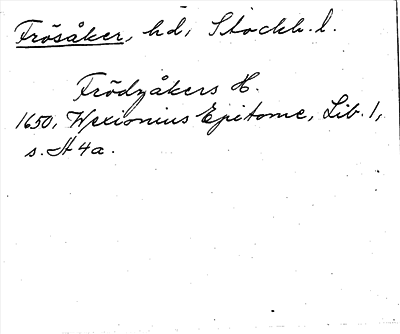 Frösåker, hd, Stockh. l.
Frödzåkers H.
1650, Wexionius Epitome, Lib. 1,
s. A 4a.